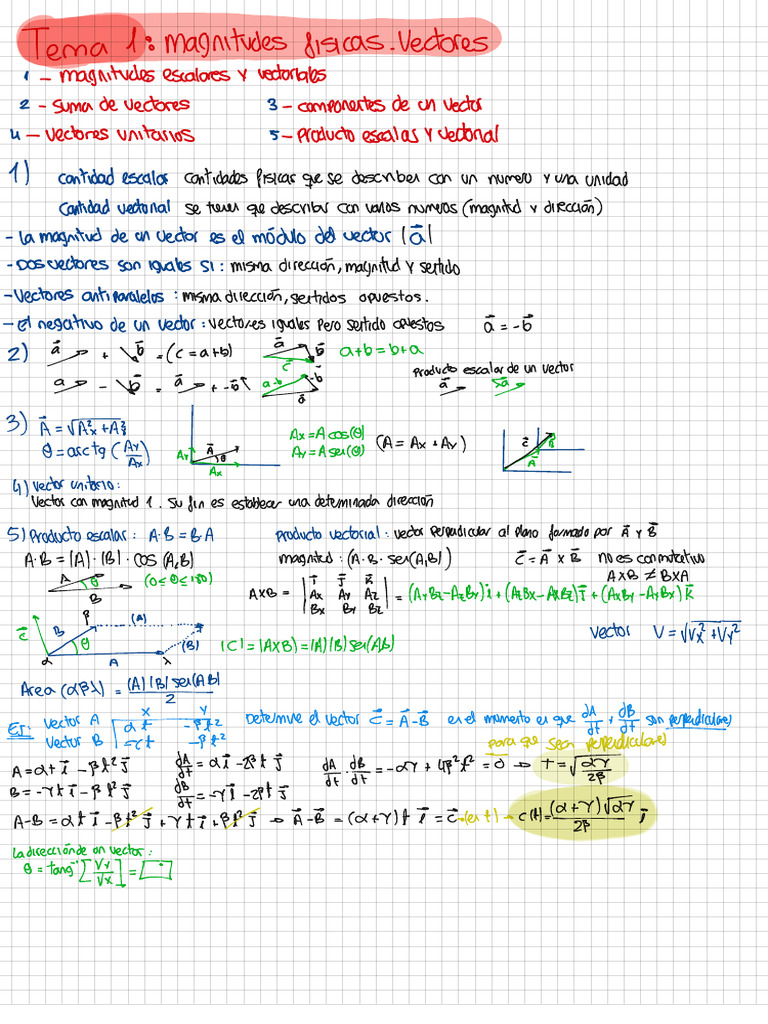 Tema 1: Magnitudes fisicas. Vectores
1 - magnitudes escalares y vectoriales
2 - suma de vectores 3 - componentes de un vector
4 - vectores unitarios 5 - Producto escalar y vectorial
1) Cantidad escalar cantidades fisicas que se describen con un numero y una unidad
Cantidad vectorial se tienen que describir con varios numeros (magnitud y dirección)
- La magnitud de un vector es el módulo del vector |a⃗|
- Dos vectores son iguales si: misma dirección, magnitud y sentido
- Vectores antiparalelos: misma dirección, sentidos opuestos.
- el negativo de un vector: vectores iguales pero sentido opuestos a⃗ = -b⃗
2) a⃗ + b⃗ = (c = a+b) a⃗ b⃗ c⃗ a+b = b+a
a - b⃗ = a⃗ + -b⃗ a-b -b a
Producto escalar de un vector
a⃗ sa⃗
3) A⃗ = √(A²x + A²y)
θ = arctg (Ay/Ax)
Ay A⃗ θ Ax
Ax = A cos(θ)
Ay = A sen(θ)
(A = Ax + Ay)
c⃗ B A⃗
4) vector unitario:
Vector con magnitud 1. Su fin es establecer una determinada dirección
5) Producto escalar: A·B = B·A Producto vectorial: vector perpendicular al plano formado por A⃗ y B⃗
A·B = |A|·|B|·cos(A,B) magnitud: (A·B·sen(A,B|) c⃗ = A⃗ x B⃗ no es conmutativo
AXB ≠ BXA
A θ B (0 ≤ θ ≤ 180)
AXB = | i⃗ j⃗ k⃗ |
| Ax Ay Az |
| Bx By Bz | = (AyBz - AzBy)i⃗ + (AzBx - AxBz)j⃗ + (AxBy - AyBx)k⃗
c⃗ β B θ α A λ (A) (B)
|C| = |AXB| = |A||B|sen(A,B)
vector V = √(Vx² + Vy²)
Area (αβλ) = |A||B|sen(AB)/2
Ej: X Y
Vector A αt -βt²
Vector B -γt -βt²
Determine el vector c⃗ = A⃗ - B⃗ en el momento en que dA⃗/dt + dB⃗/dt son perpendiculares
para que sean perpendiculares
A = αt i⃗ - βt² j⃗ dA⃗/dt = α i⃗ - 2βt j⃗
B = -γt i⃗ - βt² j⃗ dB⃗/dt = -γ i⃗ - 2βt j⃗
dA/dt · dB/dt = -αγ + 4β²t² = 0 → t = √(αγ)/2β
A-B = αt i⃗ - βt² j⃗ + γt i⃗ + βt² j⃗ → A⃗-B⃗ = (α+γ)t i⃗ = c⃗ (en t) → c(t) = (α+γ)√(αγ)/2β i⃗
La dirección de un vector:
θ = tang⁻¹ [Vy/Vx] = □°